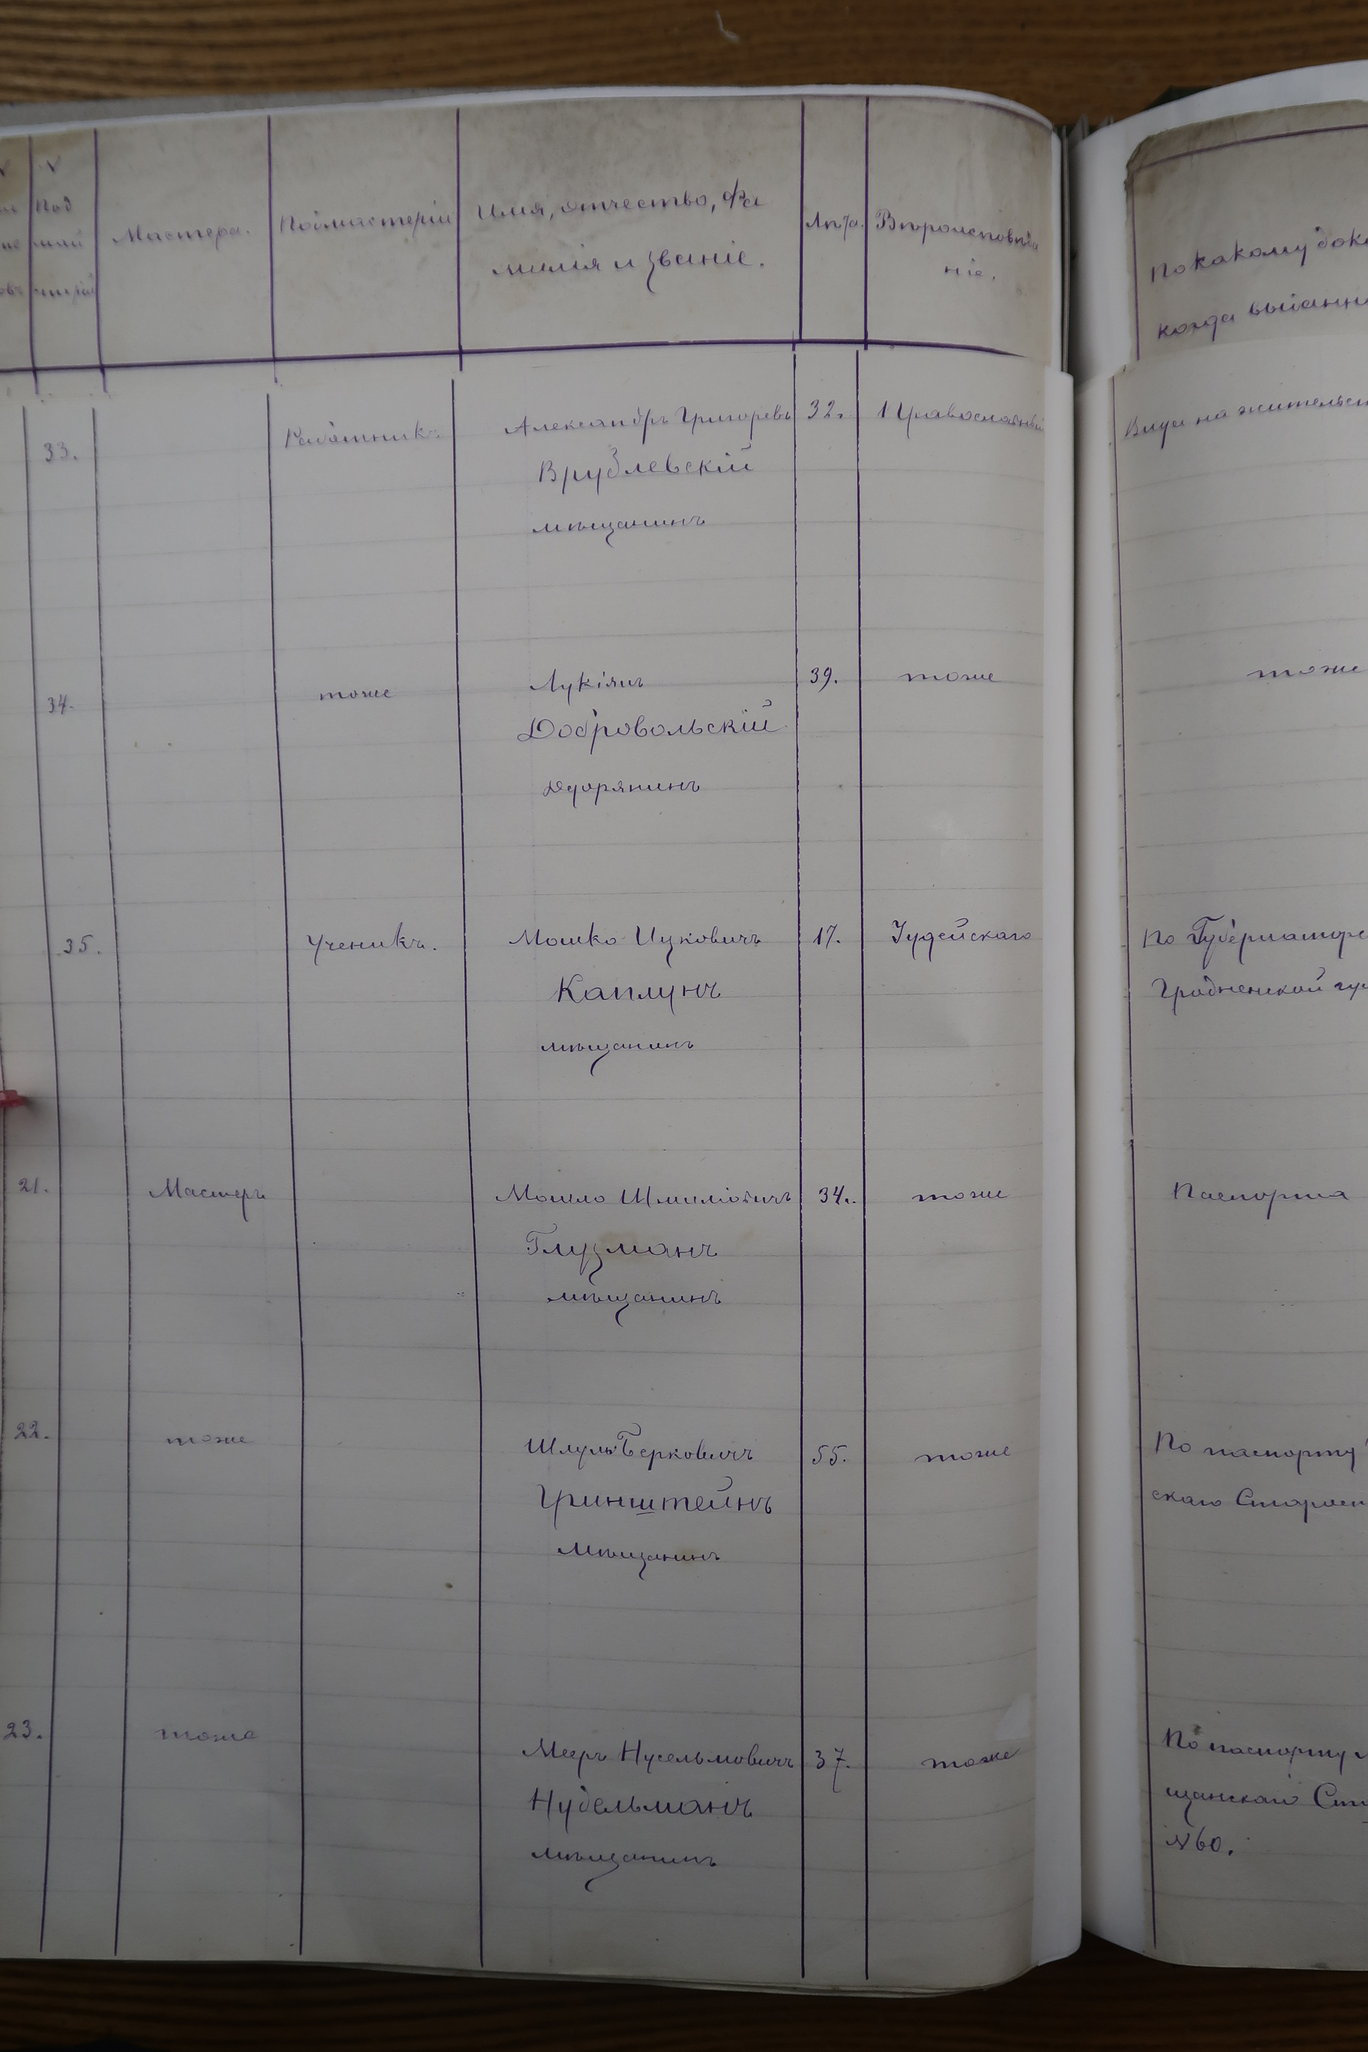 Под
Мастера.
Подмастерiи
Имя, отчество, Фа
милiя и званiе.
Лѣта.
Вѣроисповѣда
нiе.
По какому док
когда выданн
33.
Работникъ
Александръ Григорьевъ
Врублевскiй
мѣщанинъ
32.
Православный
Вида на жительст
34.
тоже
Лукiянъ
Добровольскiй
дворянинъ
39.
тоже
тоже
35.
Ученикъ.
Мошко Ицковичъ
Каплунъ
мѣщанинъ
17.
Iудейскаго
По Губернаторс
Гродненской гу
21.
Мастеръ
Глузманъ
мѣщанинъ
34.
тоже
Паспорта
22.
тоже
Берковичъ
Гринштейнъ
Мѣщанинъ
55.
тоже
По паспорту
скаго Старос
23.
тоже
Мееръ Нусельмовичъ
Нудельманъ
мѣщанинъ
37.
тоже
По паспорту
щанскаго Ст
№60.